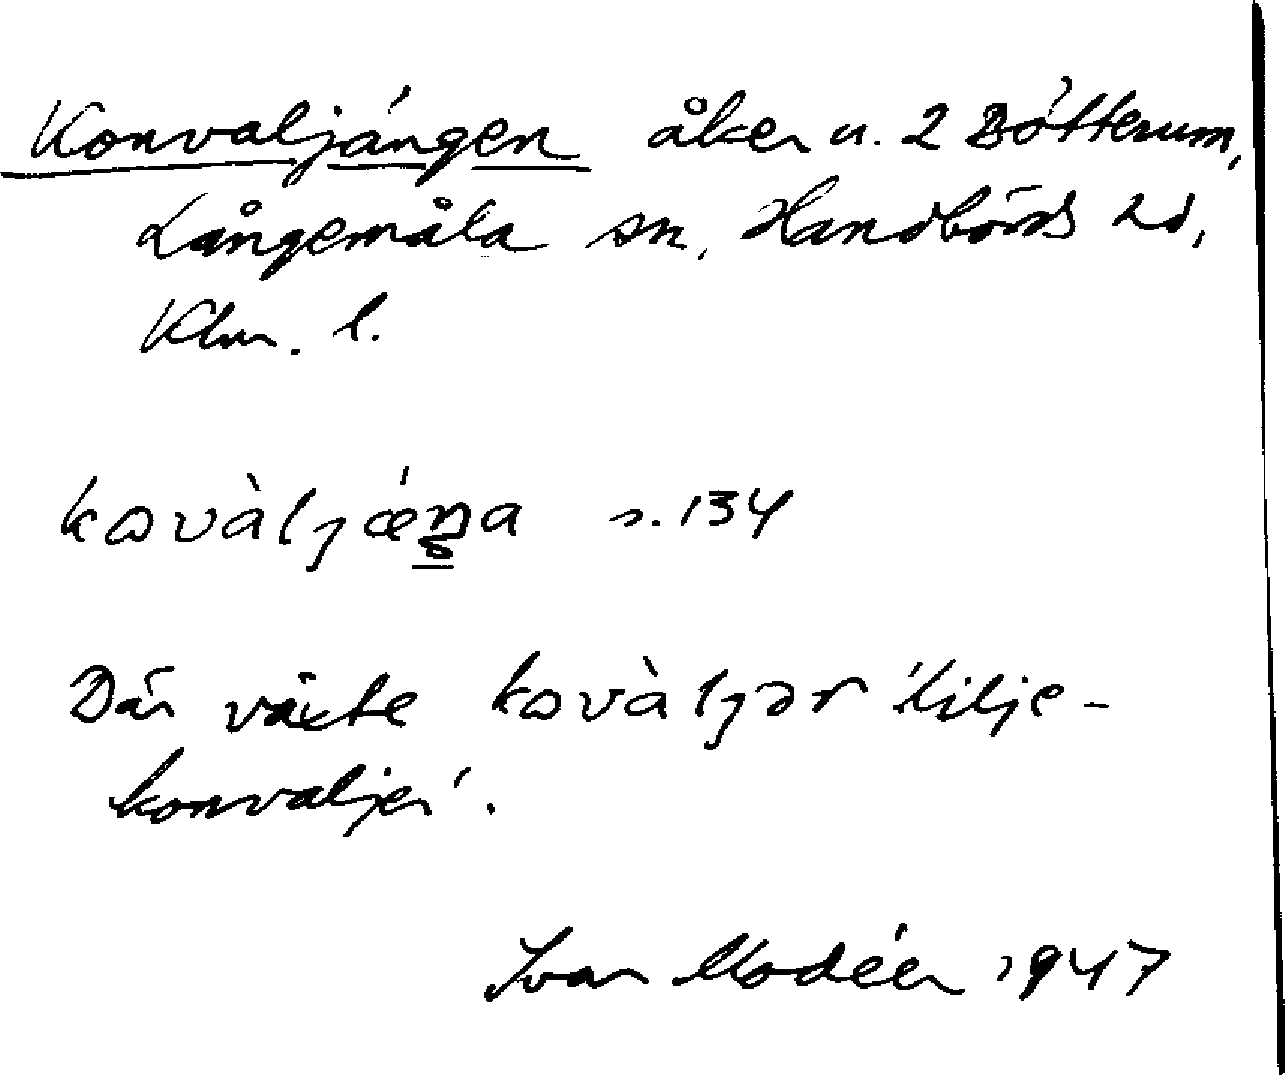 Konvaljängen åker n. 2 Bötterum,
Långemåla sn, Handbörds hd,
Klm. l.
kovàljǽŋa s. 134
Där växte kovàljər 'lilje-
konvaljer'.
Ivar Modéer 1947